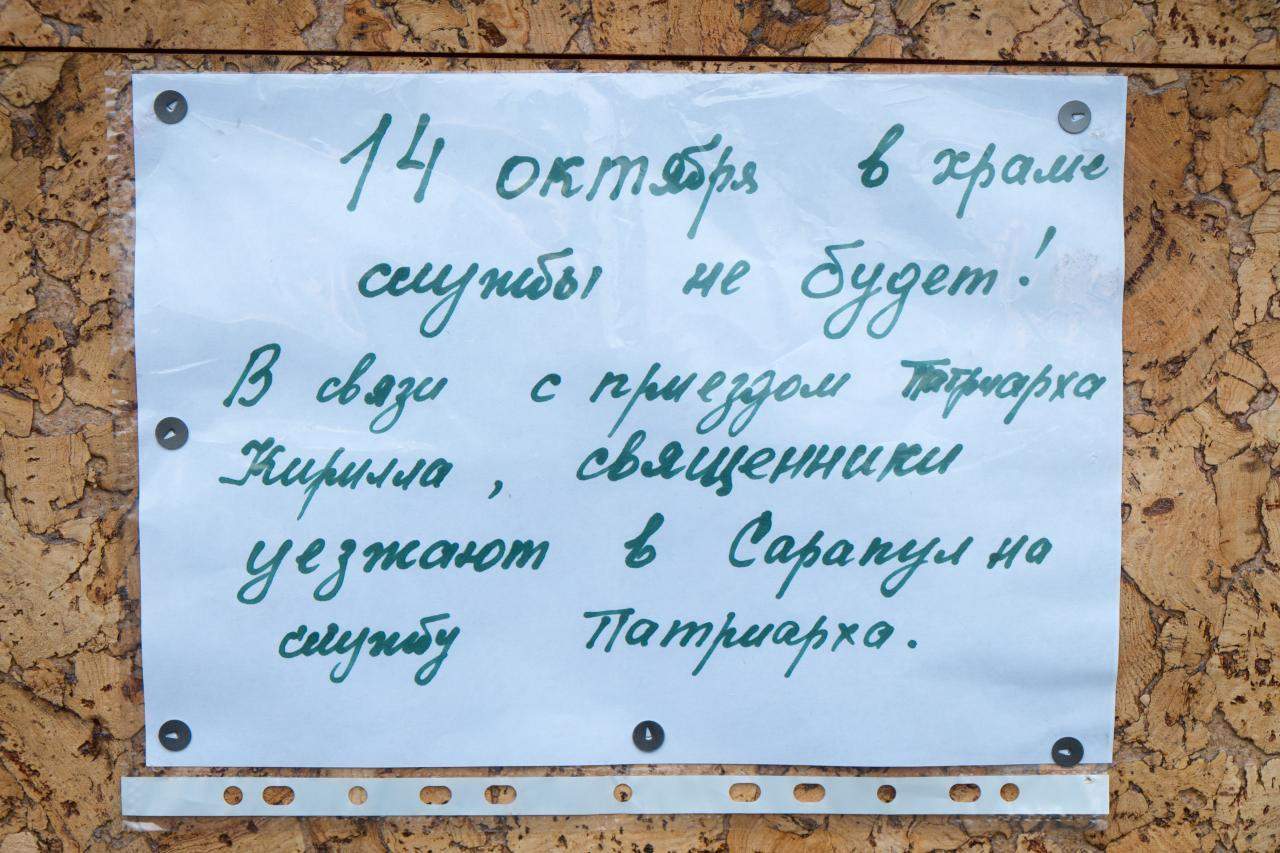 14 октября в храме
службы не будет!
В связи с приездом Патриарха
Кирилла, священники
уезжают в Сарапул на
службу Патриарха.